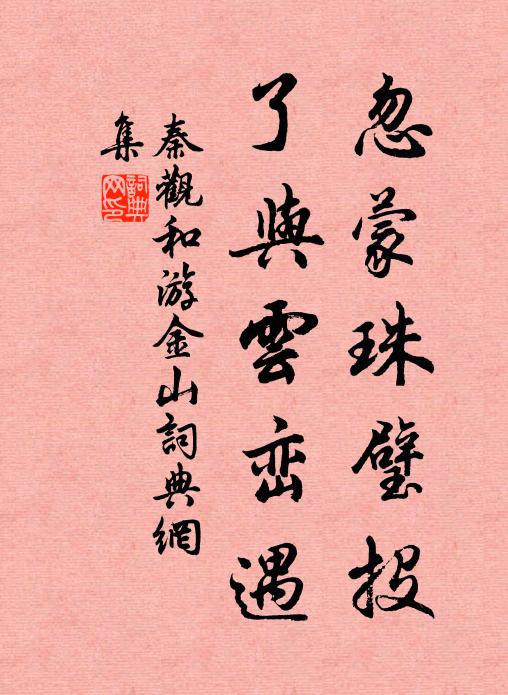 忽蒙珠璧投
了與雲峦遇
秦觀和游金山詞典網
集
詞典
网印